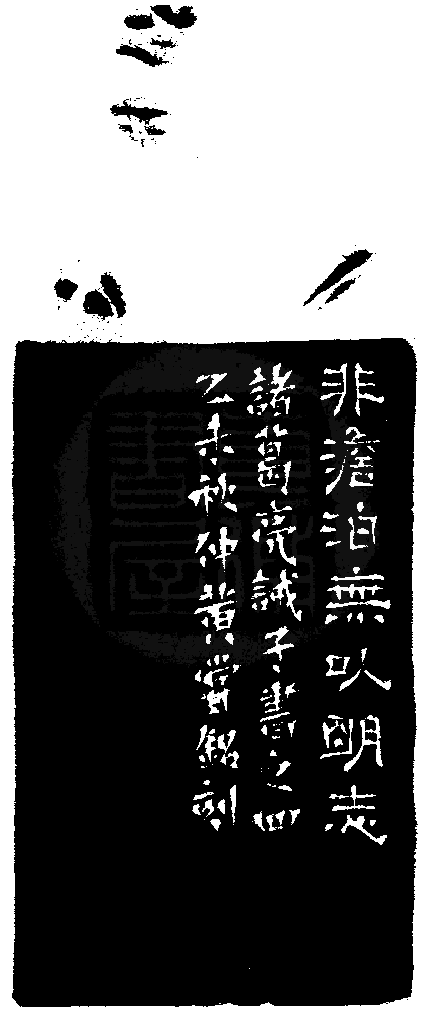 非澹泊無以明志
諸葛亮誡子書之四
乙未秋仲黄嘗銘刻